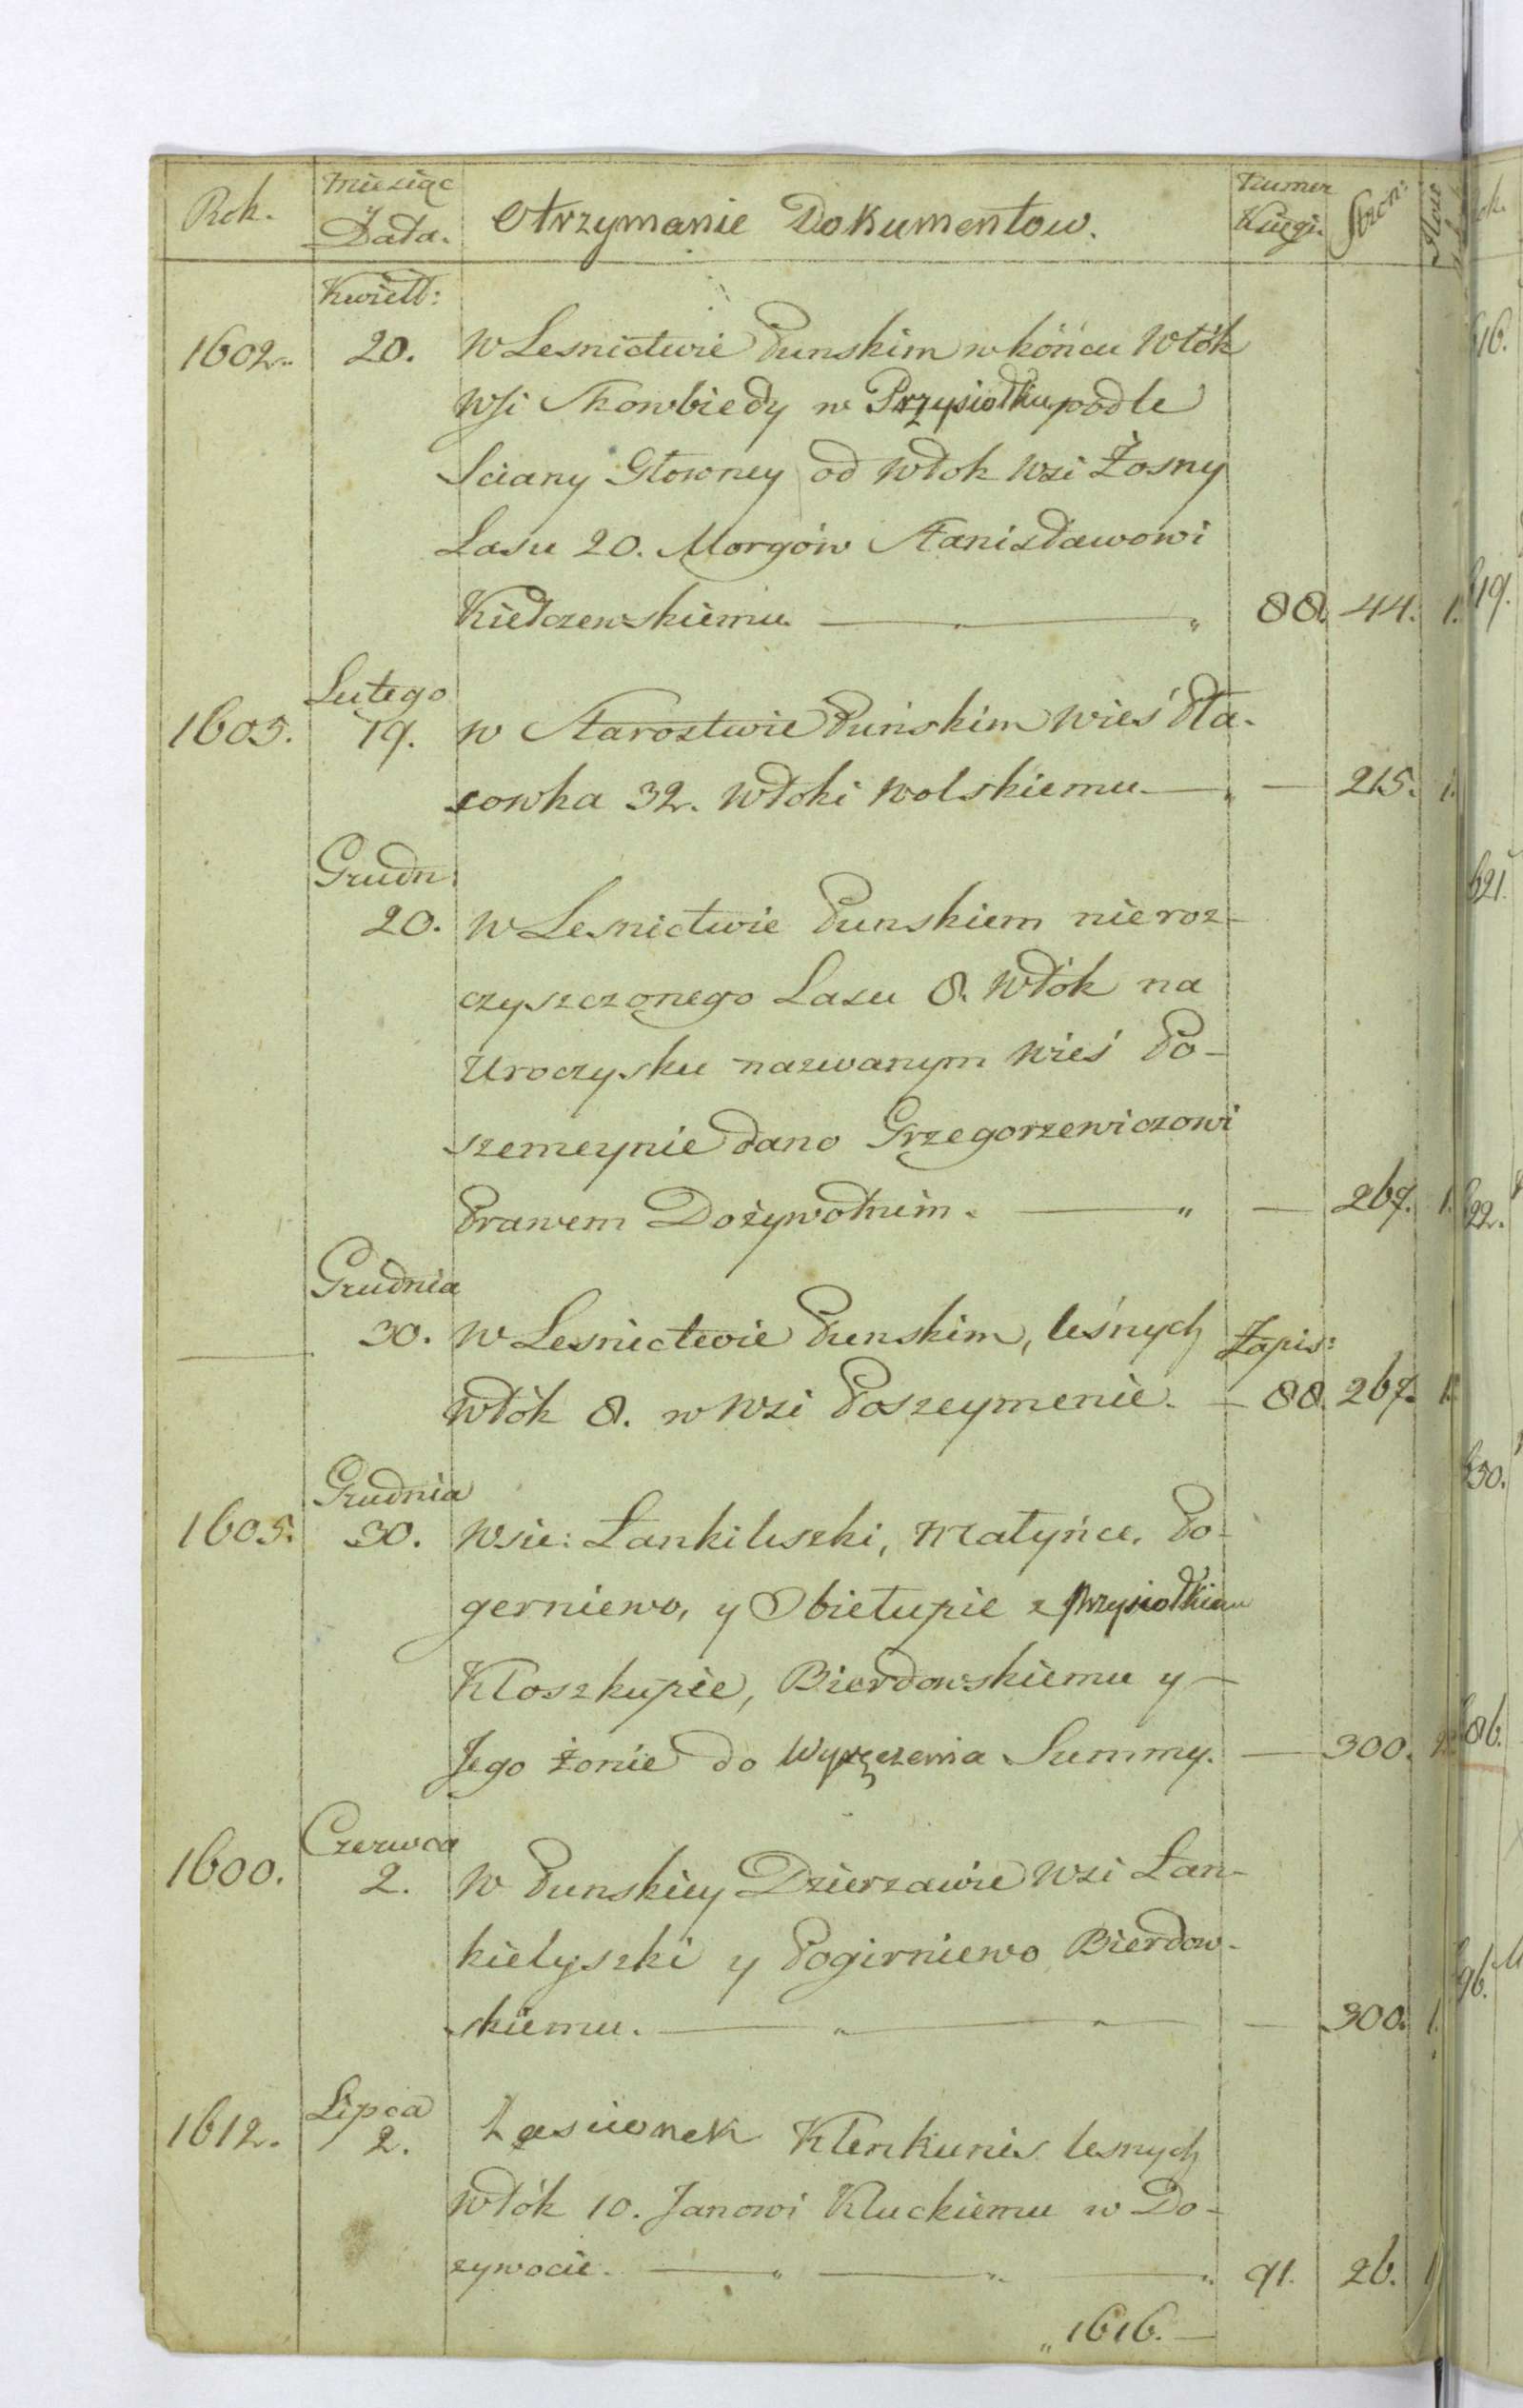 Rok. Miesiąc y Data. Otrzymanie Dokumentow. Numer Księgi. Stron:
Kwiett:
1602. 20. W Lesnictwie Punskim w końcu Włók
Wsi Skowbiedy w Przysiołku podle
Sciany Głowney od Włok Wsi Żosny
Lasu 20. Morgów Stanisławowi
Kiełczewskiemu. 88. 44. 1.
Lutego
1605. 19. w Starostwie Puńskim wieś
cowka 32. Włoki Wolskiemu. — 215. 1.
Grudn:
20. W Lesnictwie Punskiem nieroz-
czyszczonego Lasu 8. Włók na
Uroczysku nazwanym Wieś Po-
szemeynie dano Grzegorzewiczowi
Prawem Dożywotnim. — 267. 1.
Grudnia
— 30. W Lesnictwie Punskim, leśnych Zapis:
Włók 8. w Wsi Poszeymenie. — 88. 267. 1.
Grudnia
1605. 30. Wsie: Łankiliszki, Matyńce, Po-
gerniewo, y Obietupie z Przysiołkiem
Kloszkupie, Bierdowskiemu y —
Jego żonie do Summy. — 300.
Czerwca
1600. 2. W Punskiey Dzierzawie Wsi Łan-
kielyszki y Pogirniewo Bierdow-
skiemu. — „ — „ — 300. 1.
Lipca
1612. 2. Zasiwonek Klenkunis lesnych
Włók 10. Janowi Kluckiemu w Do-
zywocie. — „ — „ — „ 91. 26. 1
„ 1616. —